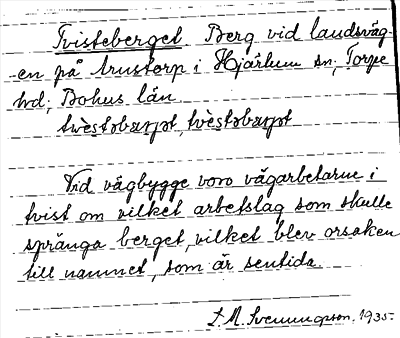 Tvisteberget. Berg vid landsväg-
en på Arustorp i Hjärtum sn, Torpe
hd, Bohus län.
Vid vägbygge voro vägarbetarne i
tvist om vilket arbetslag som skulle
spränga berget, vilket blev orsaken
till namnet, som är sentida.
S. M. Svenungson. 1935-